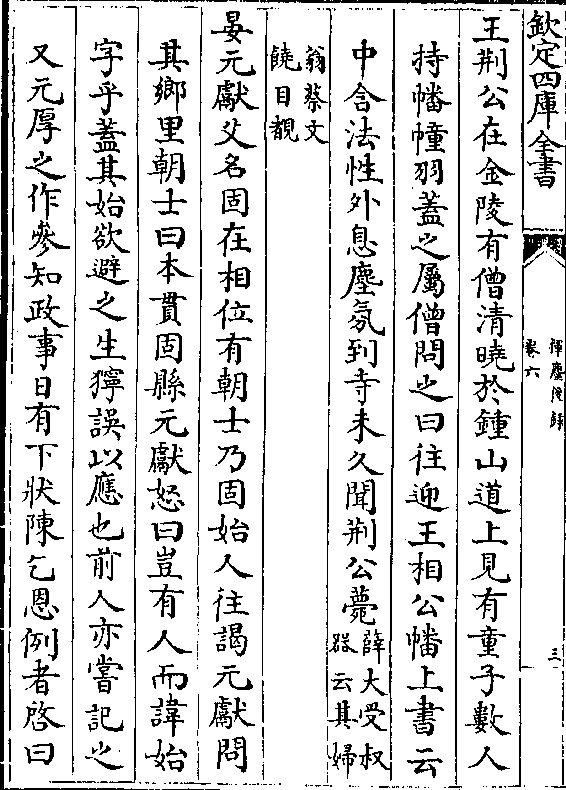 欽定四庫全書
揮麈後錄
卷六
三
王荆公在金陵有僧清曉於鍾山道上見有童子數人
持幡幢羽蓋之屬僧問之曰往迎王相公幡上書云
中含法性外息塵氛到寺未久聞荆公薨薛大受叔
器云其婦
翁蔡文
饒目覩
晏元獻父名固在相位有朝士乃固始人往謁元獻問
其鄉里朝士曰本貫固縣元獻怒曰豈有人而諱始
字乎蓋其始欲避之生獰誤以應也前人亦嘗記之
又元厚之作參知政事日有下狀陳乞恩例者啓曰